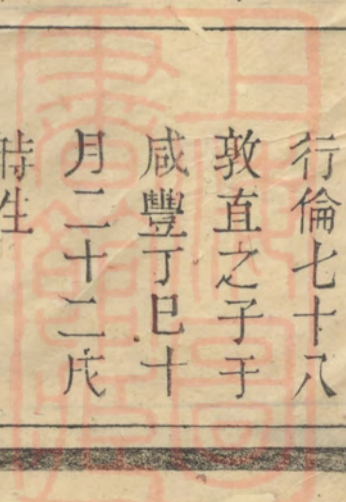 行倫七十八
敦直之子于
咸豐丁巳十
月二十二戌
時生